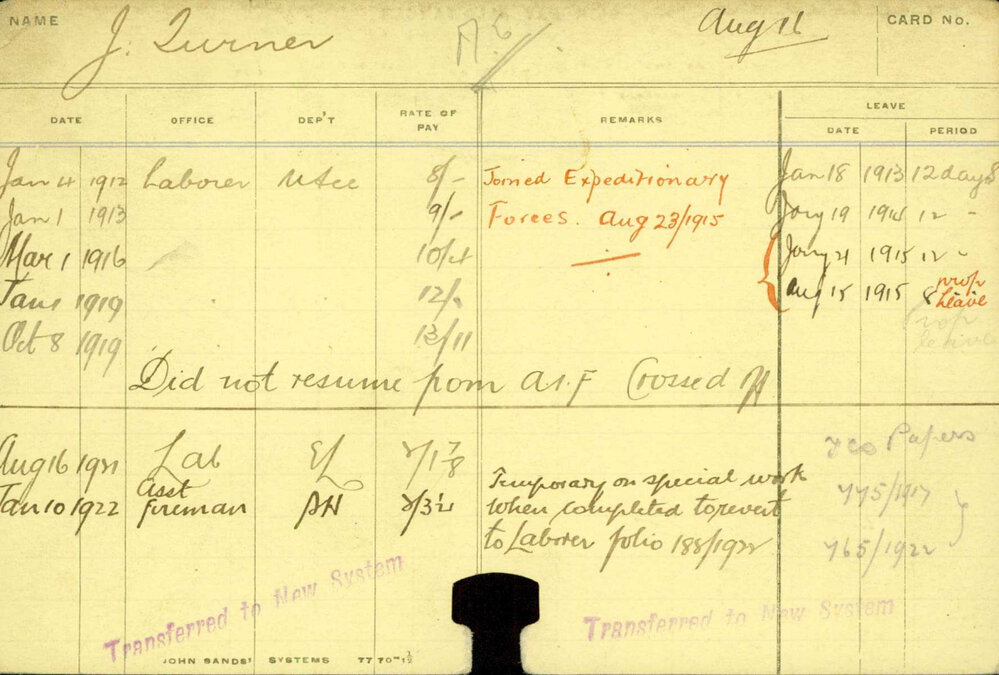 NAME J. Turner A.6 Aug 16 CARD No.
DATE OFFICE DEP'T RATE OF PAY REMARKS LEAVE
DATE PERIOD
Jan 4 1912 Laborer 8/- Joined Expeditionary Jan 18 1913 12 days
Jan 1 1913 9/- Forces. Aug 23/1915 Jany 19 1914 12 "
Mar 1 1916 10/4 Jany 21 1915 12 "
Jan 1 1919 12/- Aug 15 1915 8 prop leave
Oct 8 1919 13/11 prop leave
Did not resume from A.I.F Crossed off
Aug 16 1921 Lab EL Papers
Jan 10 1922 Asst Fireman PH Temporary on special work 775/1917
when completed to revert
to Laborer folio 188/1922 765/1922
Transferred to New System Transferred to New System
JOHN SANDS' SYSTEMS 77 70-1½